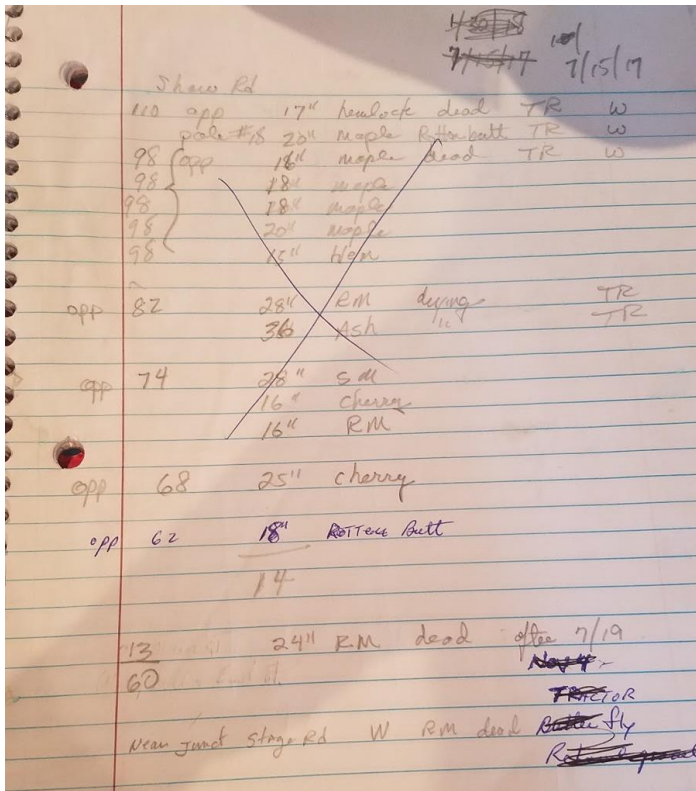 7/15/17
Shaw Rd
110 opp 17" hemlock dead TR W
pole #18 20" maple Rotten butt TR W
98 opp 18" maple dead TR W
98 18" maple
98 18" maple
98 20" maple
98 15" Hem
opp 82 28" RM dying TR
36 Ash " TR
opp 74 28" SM
16" cherry
16" RM
opp 68 25" cherry
opp 62 18" Butt
14
13 24" RM dead after 7/19
60
Near Junct Stage Rd W RM dead fly